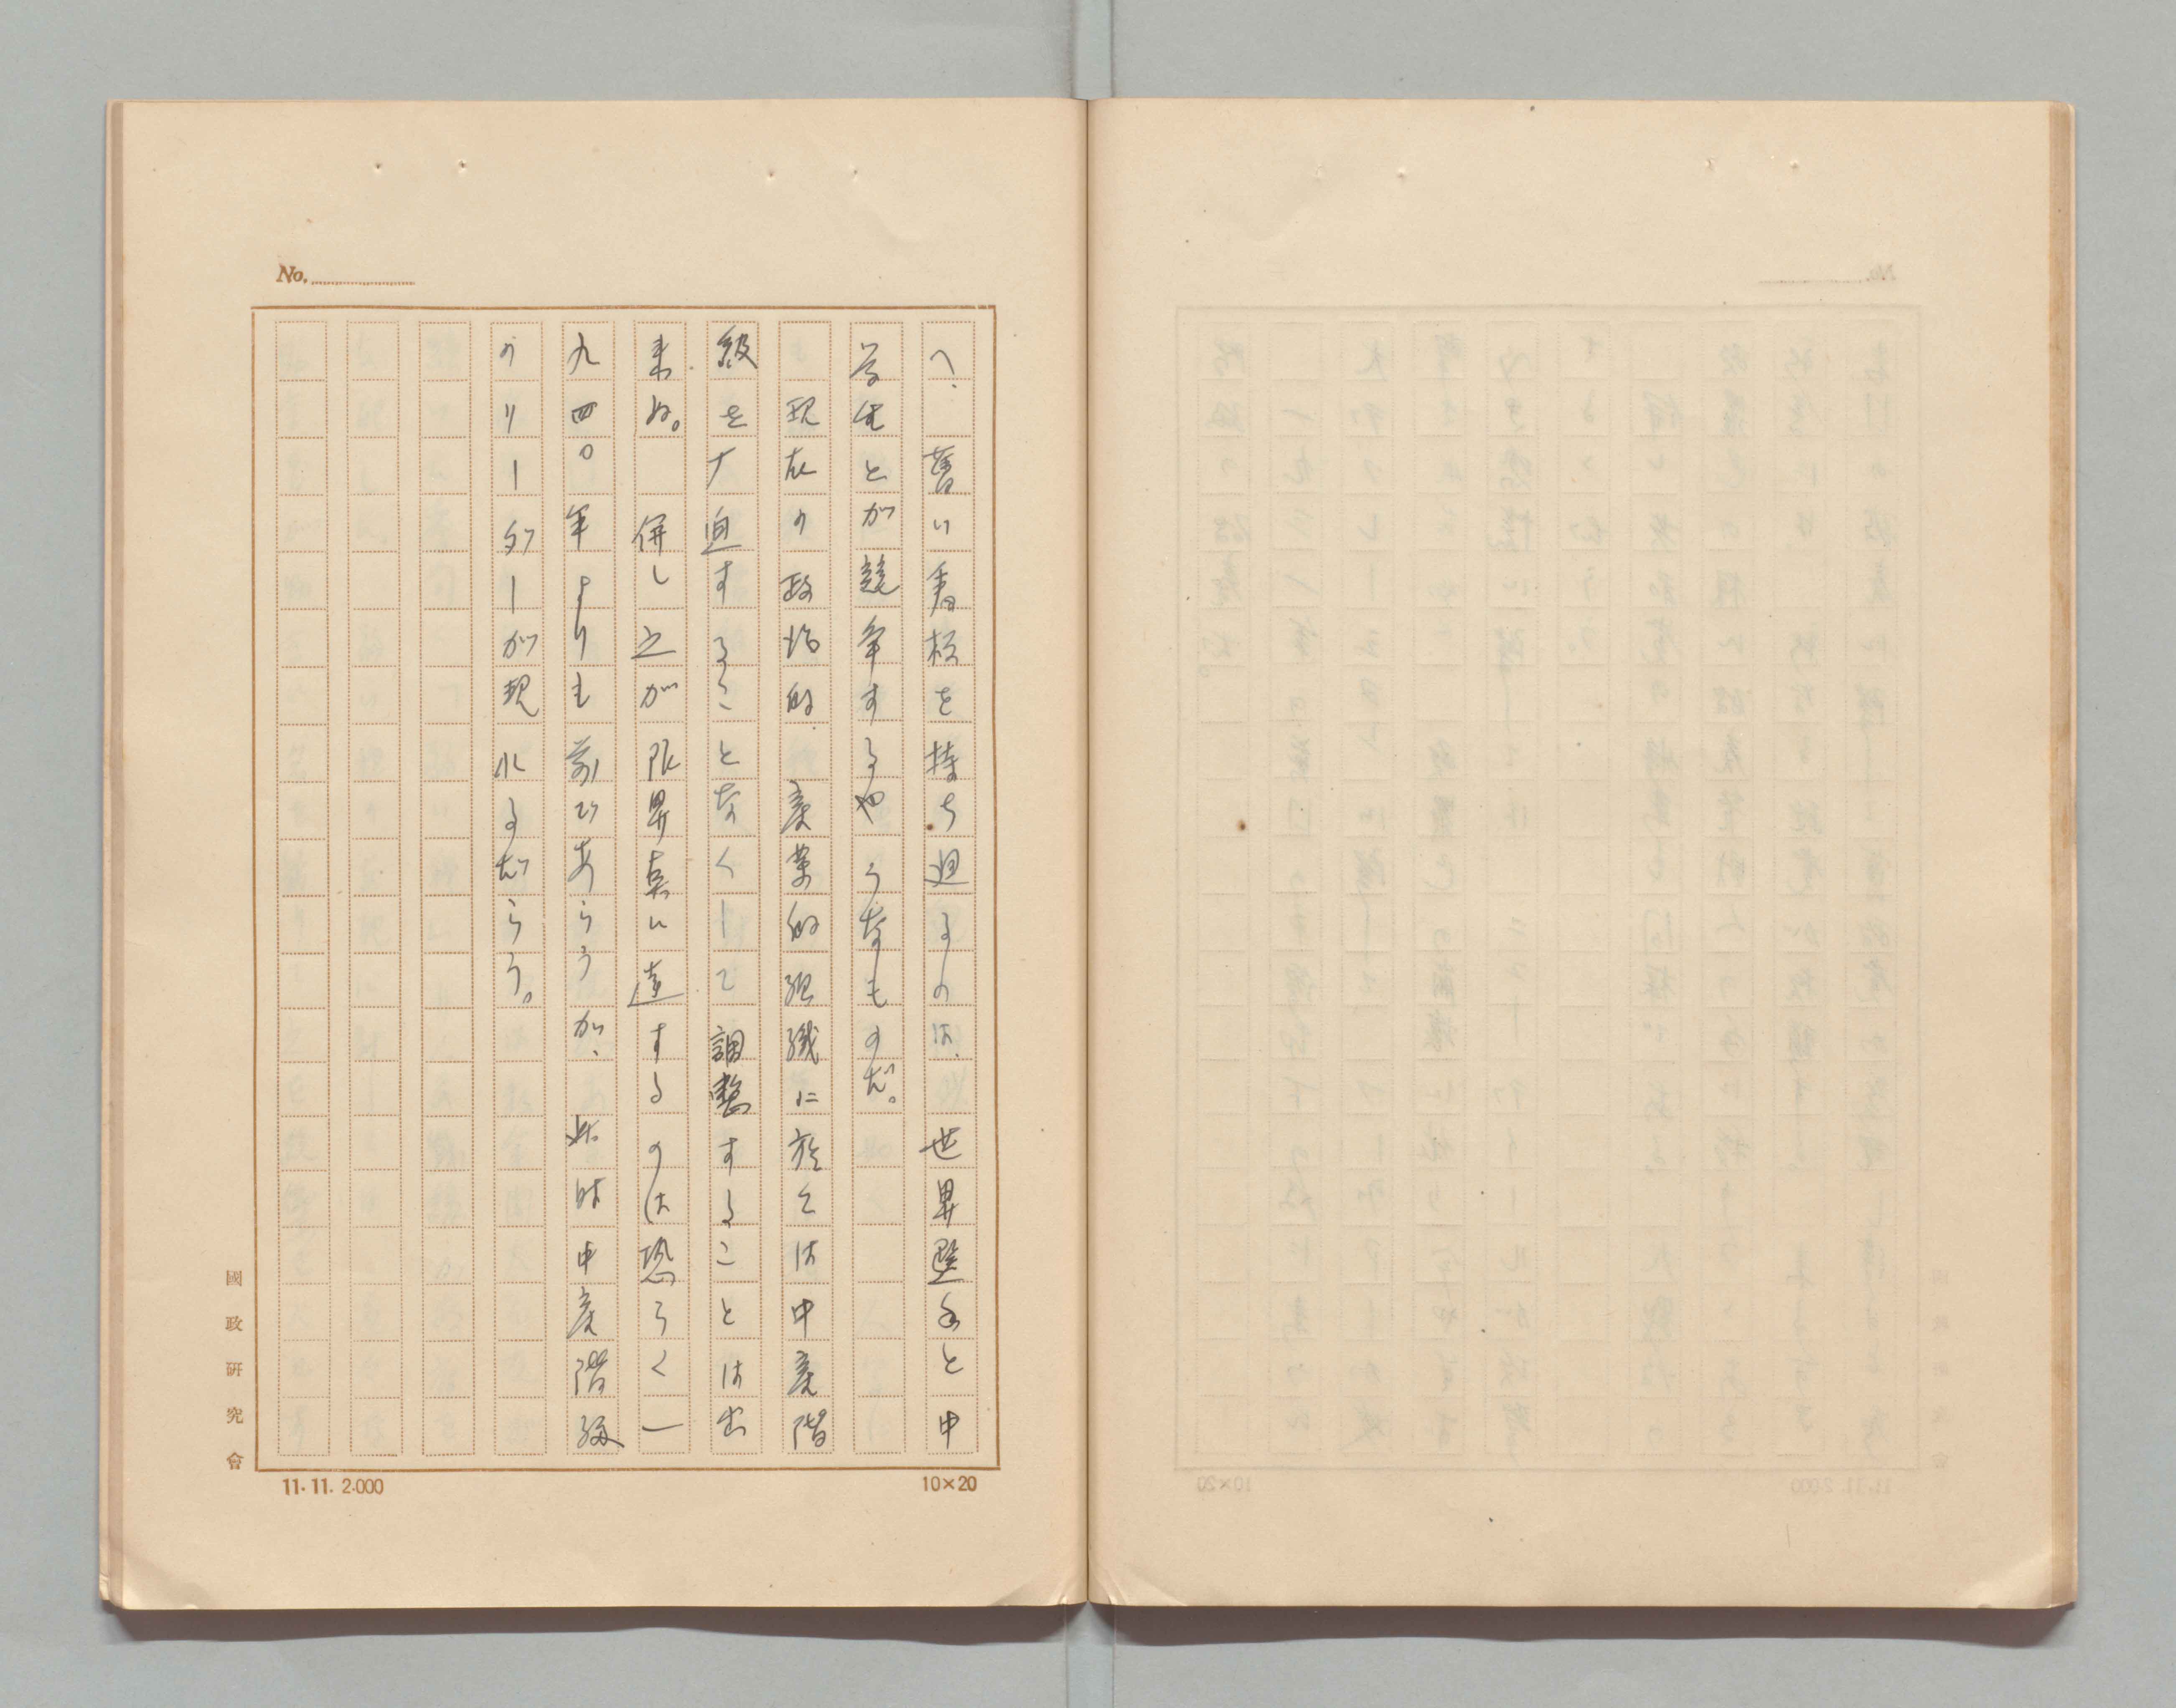 No.
へ、舊い看板を持ち廻るのは、世界選手と中
学生とが競争するやうなものだ。
現在の政治的、産業的組織に於ては中産階
級を圧迫することなくして調整することは出
来ぬ。併し之が限界点に達するのは恐らく一
九四〇年よりも前であらうが、此時中産階級
のリーダーが現れるだらう。
國政研究會
11.11. 2.000
10×20